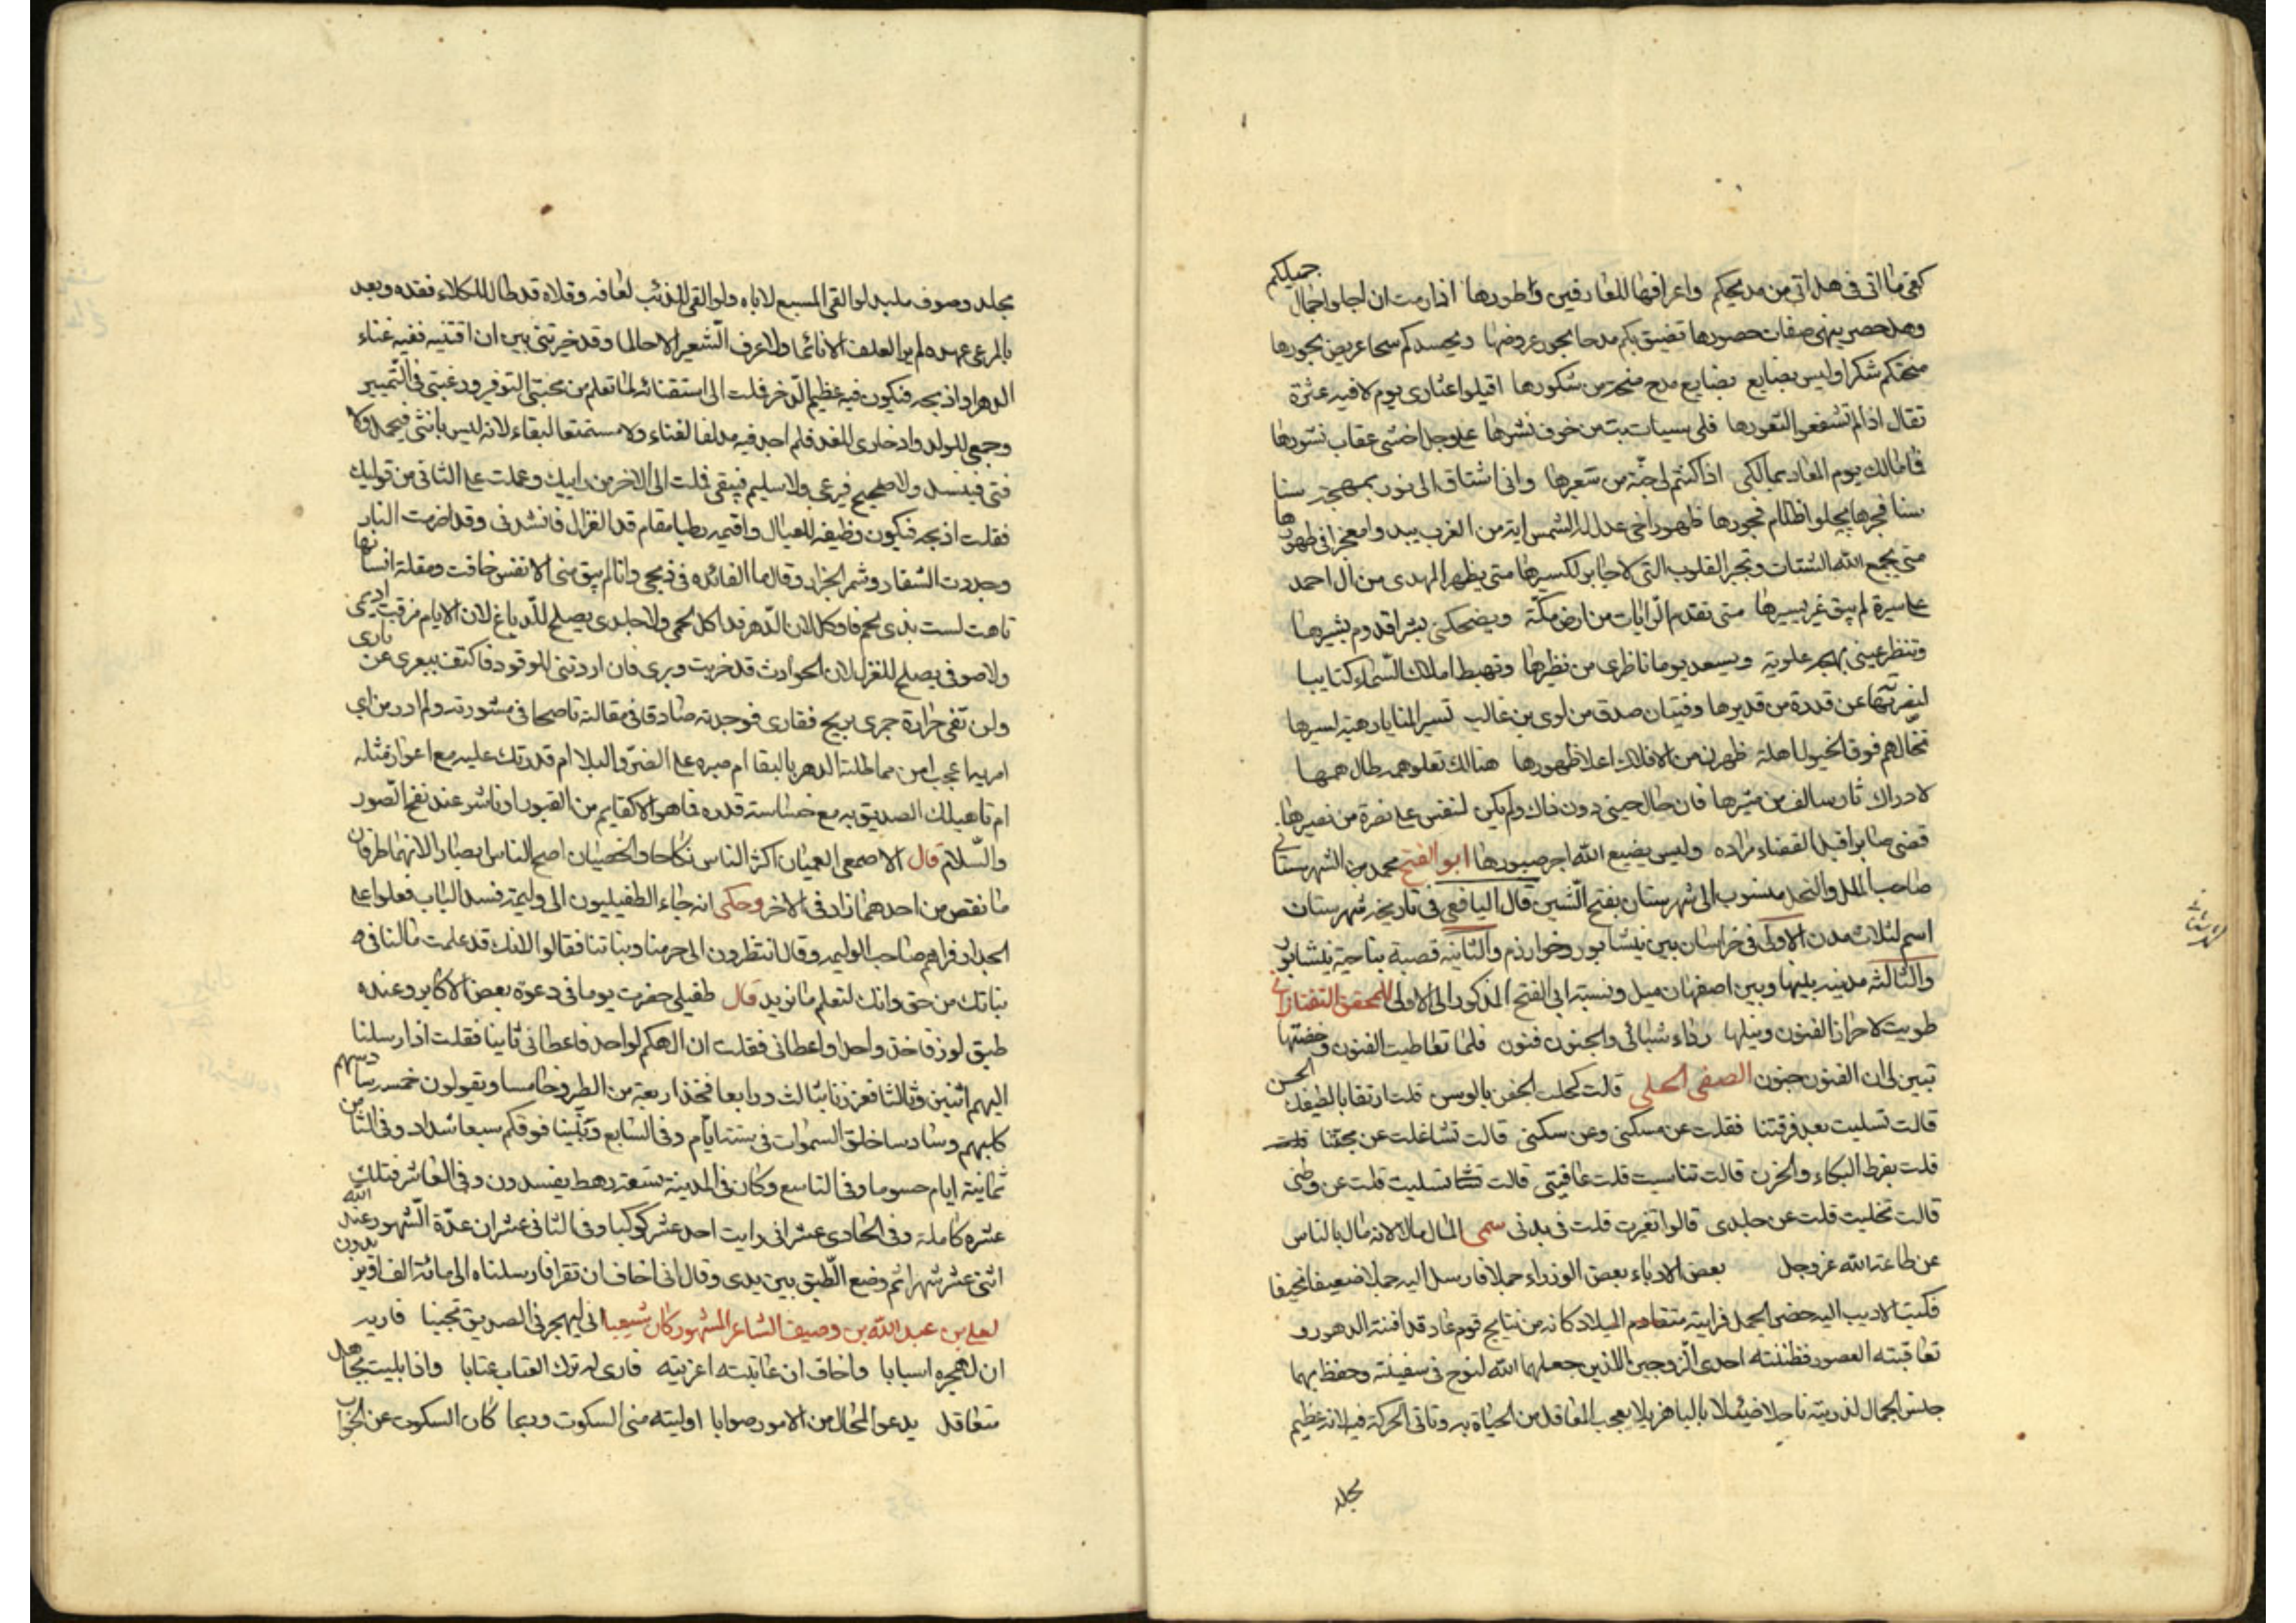 كفى ما اتى في هل اتى من مديحكم واعرافها للعارفين وطورها اذا رمت ان اجلو اجمال جميلكم
وهل حصر ينهى صفات حصورها تضيق بكم مدحا بحور عروضها ويحسدكم سحا عريض بحورها
منحتكم شكرا وليس بضايع بضايع مدح منحة من شكورها اقيلوا عثارى يوم لا فيه عثرة
تقال اذا لم تشفعوا لعثورها فلى سيات بت من خوف نشرها على وجل اخشى عقاب نشورها
فما مالك يوم المعاد بمالكى اذا كنتم لى جنة من سعيرها وانى اشتاق الى نور بهجة سنا
سنا فجرها يجلو اظلام فجورها ظهور اخى عدل له الشمس اية من الغرب يبدو امعجزا في ظهورها
متى يجمع الله الشتات وتجبر القلوب التى لا جابر لكسيرها متى يظهر المهدى من ال احمد
على سيرة لم يبق غير يسيرها متى تقدم الرايات من ارض مكة ويضحكنى بشرا قدوم بشيرها
وتنظر عينى بهجة علوية ويسعد يوما ناظرى من نظيرها وتهبط املاك السماء كتايبا
لنصرتها عن قدرة من قديرها وفتيان صدق من لوى بن غالب تسير المنايا رهبة لسيرها
تخالهم فوق الخيول اهلة ظهرن من الافلاك اعلا ظهورها هنالك تعلو همة طال همها
لادراك ثار سالف من مثيرها فان حال حينى دون ذاك ولم يكن لنفس على نصرة من نصيرها
قضى صابرا قبل القضاء مراده وليس يضيع الله اجر صبورها ابو الفتح محمد الشهرستانى
صاحب الملل والنحل منسوب الى شهرستان بفتح الشين قال اليافعى في تاريخه شهرستان
اسم لثلاث مدن الاولى في خراسان بين نيشابور وخوارزم والثانيه قصبة بناحية نيشابور
والثالثه مدينه بينها وبين اصفهان ميل ونسبة ابى الفتح المذكور الى الاولى للمحقق التفتازانى
طويت لاحراز الفنون ونيلها رداء شبابى والجنون فنون فلما تعاطيت الفنون وخضتها
تبين لى ان الفنون جنون الصفى الحلى قالت كحلت الجفن بالوسن قلت ارتقابا لطيفك الحسن
قالت تسليت بعد فرقتنا فقلت عن مسكنى وعن سكنى قالت تشاغلت عن محبتنا
قلت بفرط البكاء والحزن قالت تناسيت قلت عافيتى قالت تسليت قلت عن وطنى
قالت تخليت قلت عن جلدى قالوا تغيرت قلت في بدنى سمى المال مالا لانه مال بالناس
عن طاعة الله عز وجل بعض الادباء بعض الوزراء جملا فارسل اليه جملا ضعيفا نحيفا
فكتب الاديب اليه حضر الجمل فرايته متقادم الميلاد كانه من نتايج قوم عاد قد افنته الدهور و
تعاقبته العصور فظننته احدى الزوجين اللذين جعلهما الله لنوح في سفينته وحفظ بهما
جنس الجمال لذريته ناحلا ضئيلا باليا هزيلا يعجب العاقل من الحياة به وتاتى الحركة فيه لانه عظيم
مجلد
شهرستانى
مجلد وصوف ملبد لو القى الى السبع لاباه ولو القى للذئب لعافه وقلاه قد طال للكلاء فقده وبعد
بالمرعى عهده لم ير العلف الا نائما ولا عرف الشعير الا حالما وقد خيرتنى بين ان اقتنيه ففيه غناء
الدهر او اذبحه فيكون فيه عظيم الذخر فملت الى استقنائه لما تعلم من محبتى التوفير ورغبتى في التثمير
وجمعى للولد وادخارى للغد فلم اجد فيه مدلفا لفناء ولا مستمتعا لبقاء لانه ليس بانثى فيحمل ولا
فتى فينسل ولا صحيح فيرعى ولا سليم فيبقى فملت الى الاخر من رايك وعملت على الثانى من قوليك
فقلت اذبحه فيكون وظيفة للعيال واقيمه رطبا مقام قديد الغزال فانشدنى وقد اضرمت النار
وجددت الشفار وشمر الجزار وقال ما الفائده في ذبحى وانا لم يبق منى الا نفس خافت ومقلة انسانها
تاهت لست بذى لحم فاوكل لان الدهر قد اكل لحمى ولا جلدى يصلح للدباغ لان الايام مزقت اديمى
ولا صوفى يصلح للغزل لان الحوادث قد خربت وبرى فان اردتنى للوقود فاكتف ببعرى عن نارى
ولن تفى حرارة جمرى بريح قفارى فوجدته صادقا في مقالته ناصحا في مشورته ولم ادر من اى
امريه اعجب امن مماطلته الدهر بالبقا ام صبره على الضر والبلا ام قدرتك عليه مع اعواز مثله
ام تاهيلك الصديق به مع خساسة قدره فما هو الا كقايم من القبور او ناشر عند نفخ الصور
والسلام قال الاصمعى العميان اكثر الناس نكاحا والخصيان اصح الناس ابصارا لانهما طرفان
ما نقص من احدهما زاد في الاخر وحكى انه جاء الطفيليون الى وليمة فسد الباب فعلوا على
الجدار فراهم صاحب الوليمه وقال انتظرون الى حرمنا وبناتنا فقالوا لانك قد علمت ما لنا في
بناتك من حق وانك لتعلم ما نريد قال طفيلى حضرت يوما في دعوة بعض الاكابر وعنده
طبق لوز فاخذ واحدا واعطانى فقلت ان الهكم لواحد فاعطانى ثانيا فقلت اذ ارسلنا
اليهم اثنين وثالثا فعززنا بثالث ورابعا فخذ اربعة من الطير وخامسا ويقولون خمسة سادسهم
كلبهم وسادسا خلق السموات في ستة ايام وفي السابع وبنينا فوقكم سبعا شداد وفي الثامن
ثمانية ايام حسوما وفي التاسع وكان في المدينة تسعة رهط يفسدون وفي العاشر فتلك
عشره كاملة وفي الحادى عشر انى رايت احد عشر كوكبا وفي الثانى عشر ان عدة الشهور عند الله
اثنى عشر شهرا ثم وضع الطبق بين يدى وقال انى اخاف ان تقرا فارسلناه الى مائة الف او يزيدون
لعلى بن عبد الله بن وصيف الشاعر المشهور كان شيعيا انى ليهجرنى الصديق تجنبا فاريه
ان لهجره اسبابا واخاف ان عاتبته اغريته فارى له ترك العتاب عتابا واذا بليت بجاهل
متغافل يدعو المحال من الامور صوابا اوليته منى السكوت وربما كان السكوت عن الجواب